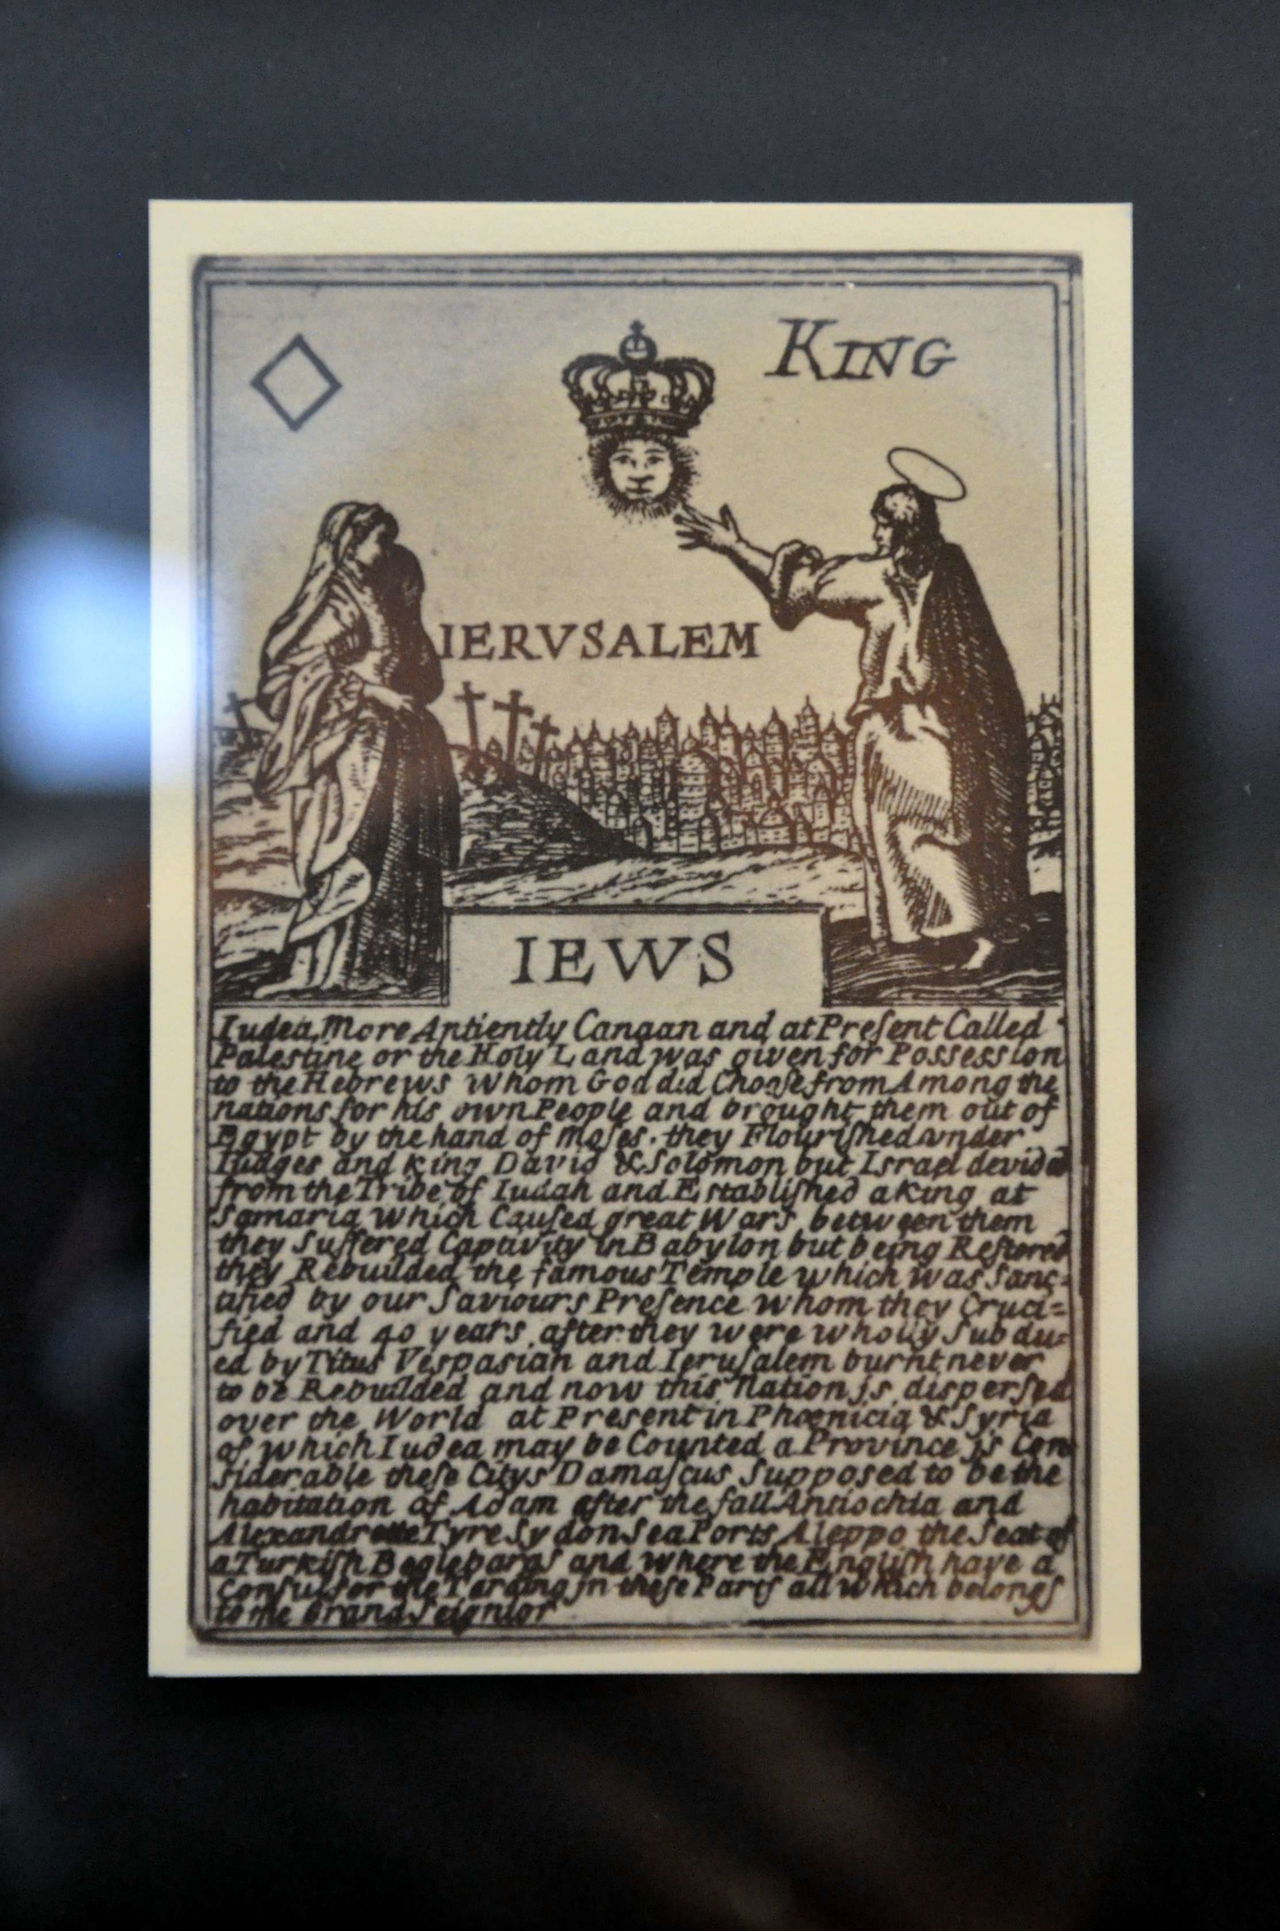 KING
IERVSALEM
IEWS
Iudea More Antiently Canaan and at Preſent Called
Palestine or the Holy Land was given for Possession
to the Hebrews whom God did Chooſe from Among the
nations for his own People and brought them out of
Egypt by the hand of Moſes. they Flouriſhed vnder
Iudges and King David & Solomon but Israel devided
from the Tribe of Iudah and Establiſhed a King at
Samaria which Cauſed great Wars between them
they Suffered Captivity in Babylon but being Reſtored
they Rebuilded the famous Temple which was Sanc=
tified by our Saviours Preſence whom they Cruci=
fied and 40 years after they were wholly Subdu=
ed by Titus Veſpasian and Ieruſalem burnt never
to be Rebuilded and now this Nation is disperſed
over the World at Present in Phœnicia & Syria
of which Iudea may be Counted a Province is Con
ſiderable theſe Citys Damaſcus Supposed to be the
habitation of Adam after the fall Antiochia and
Tyre Sydon Sea Ports Aleppo the Seat of
a Turkiſh and where the Engliſh have a
Conſul for the in theſe Parts all which belongs
to the Grand Seignior